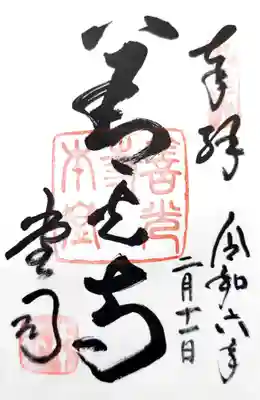 奉拝
令和六年
二月十一日
善光寺
堂司
善光
寺
本堂